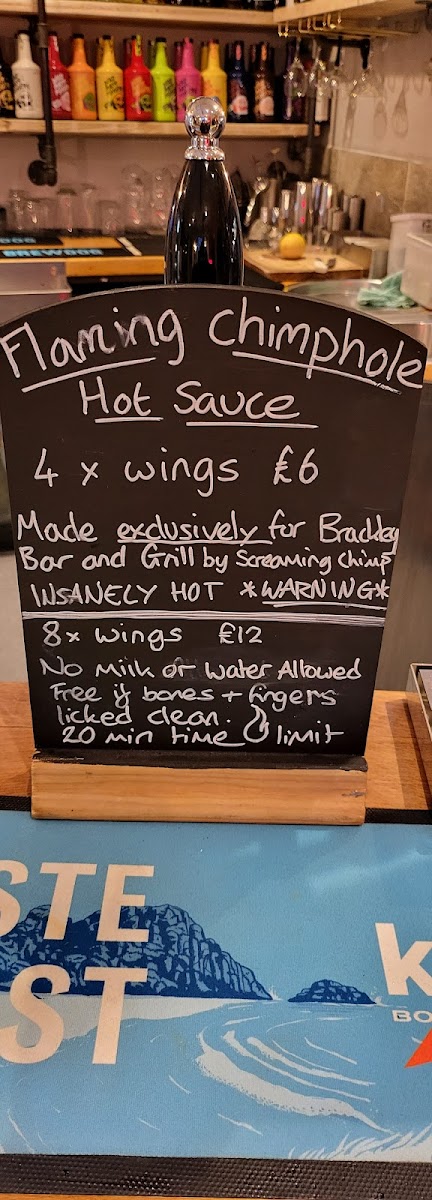 BREWDOG
Flaming Chimphole
Hot Sauce
4 x wings £6
Made exclusively for Brackley
Bar and Grill by Screaming Chimp
INSANELY HOT *WARNING*
8x wings £12
No Milk or Water Allowed
Free if bones + fingers
licked clean.
20 min time limit
STE
ST
K
BO